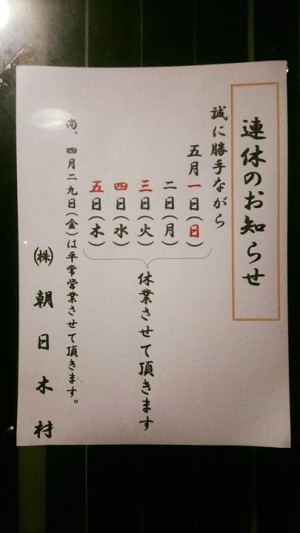 連休のお知らせ
誠に勝手ながら
五月一日(日)
二日(月)
三日(火)
四日(水)
五日(木)
休業させて頂きます
尚、四月二九日(金)は平常営業させて頂きます。
㈱朝日木材